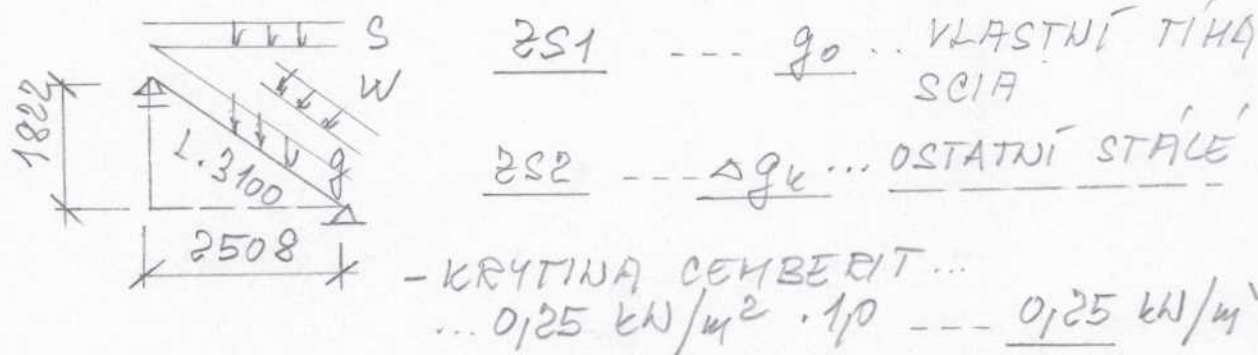 S
W
g
L.3100
1822
2508
ZS1 --- g0 .. VLASTNÍ TÍHA
SCIA
ZS2 --- Δgk ... OSTATNÍ STÁLÉ
- KRYTINA CEMBERIT...
... 0,25 kN/m² . 1,0 --- 0,25 kN/m'